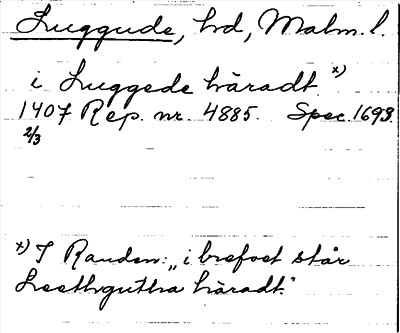 Luggude, hd, Malm. l.
i Luggede häradt. x)
1407 Rep. nr. 4885. Spec. 1693.
2/3
x) I Randen: „i brefvet står
Lwthgutha häradt."